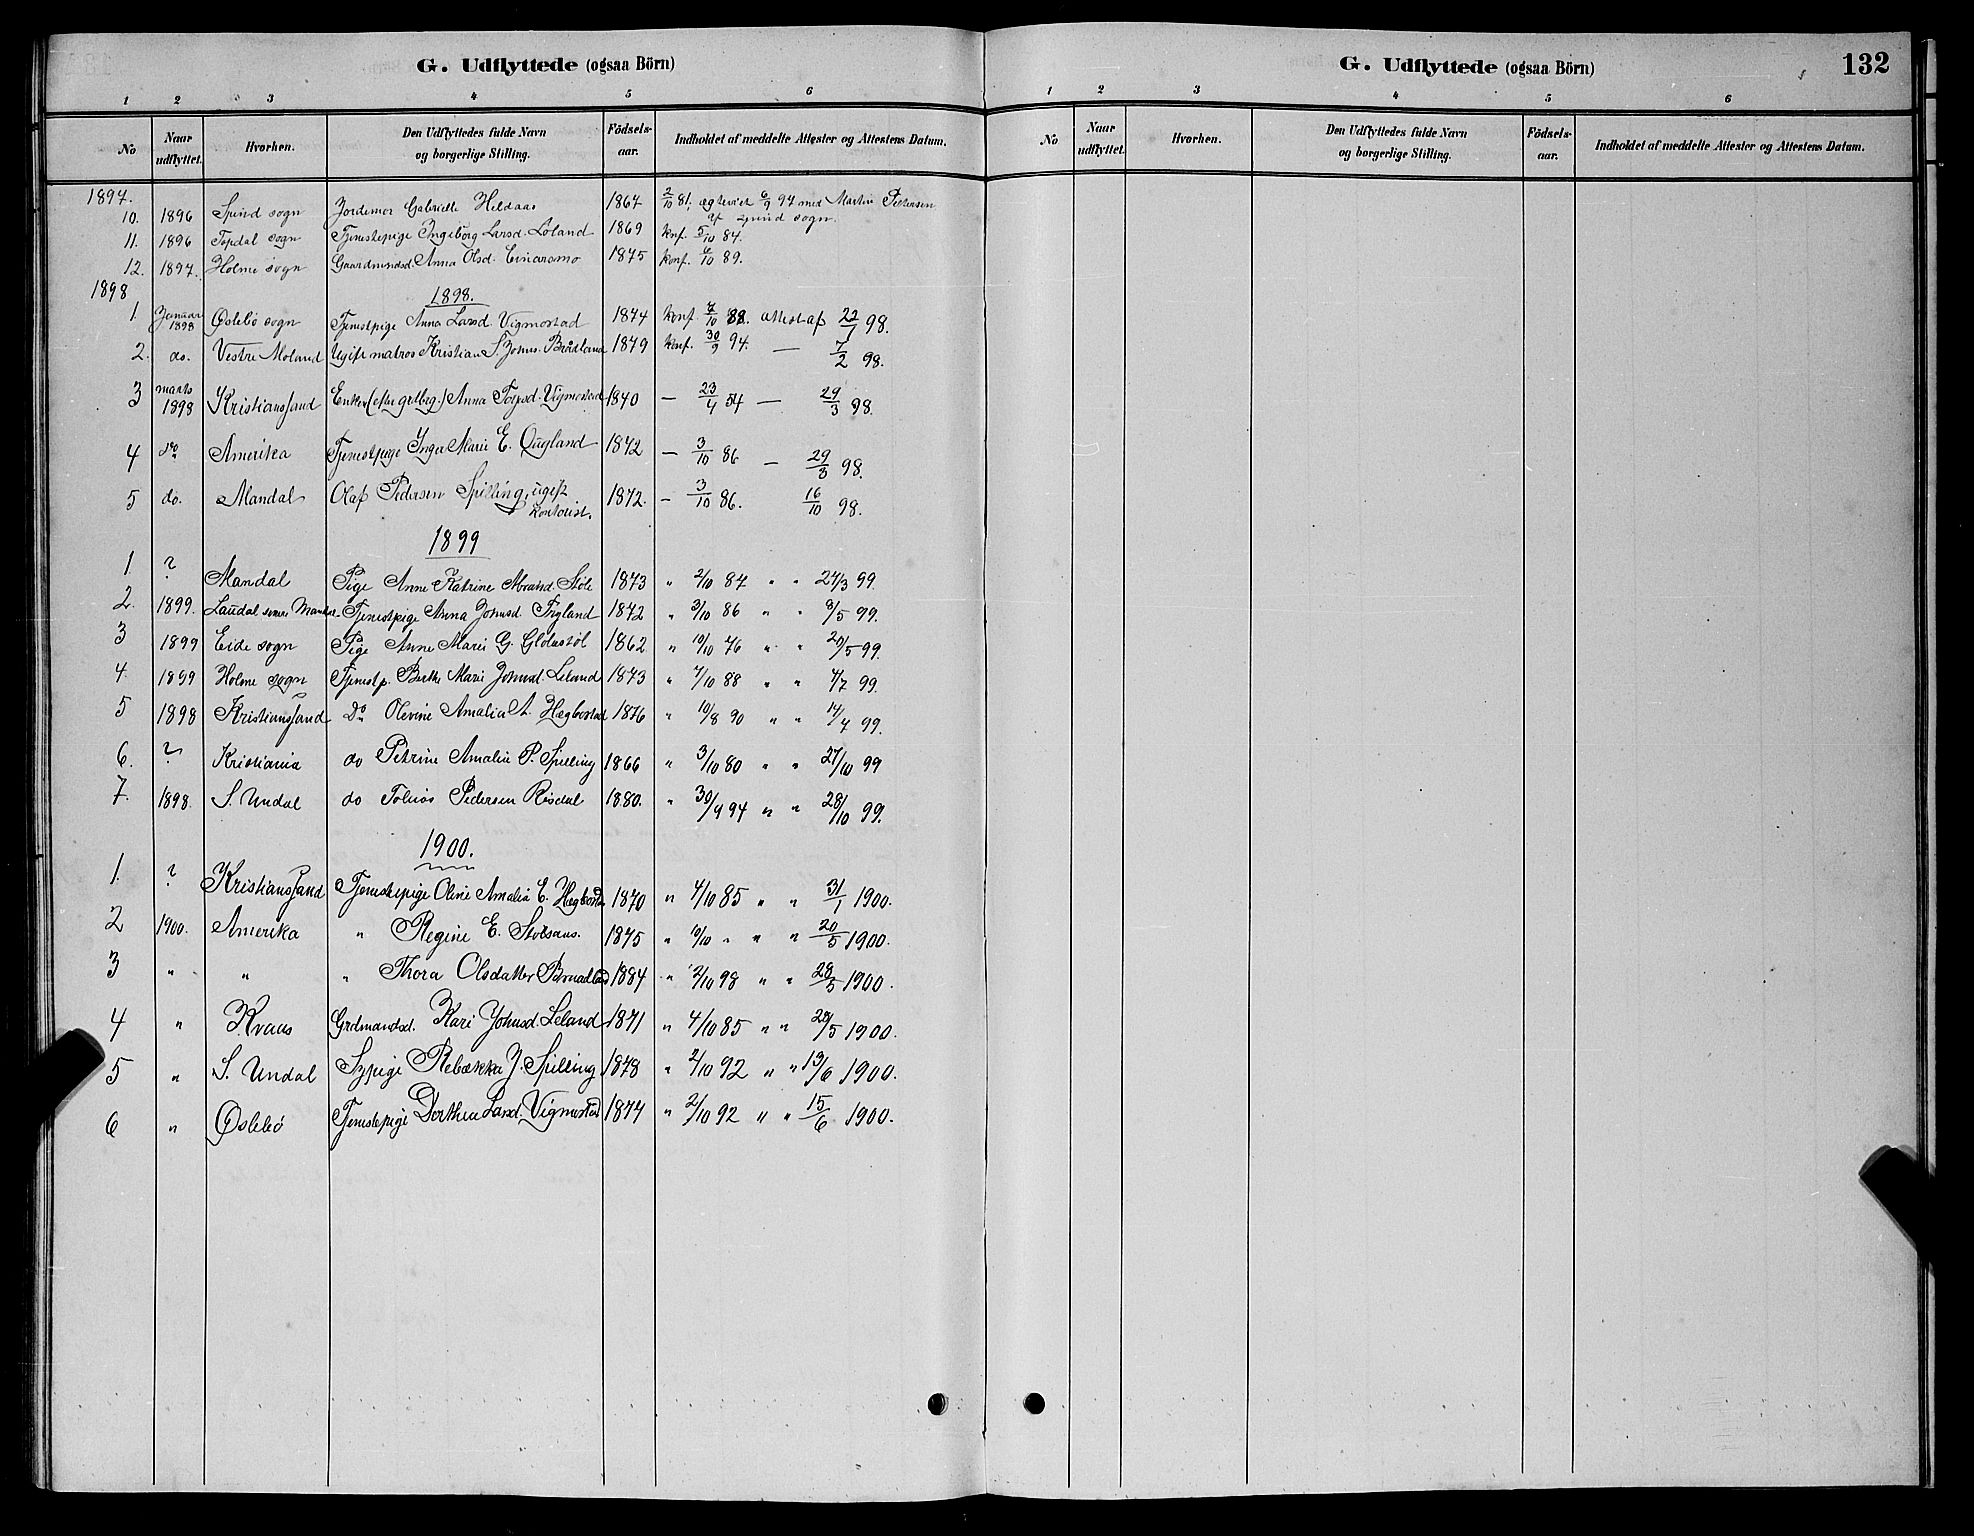 G. Udflyttede (ogsaa Börn)
1 2 3 4 5 6
No Naar udflyttet. Hvorhen. Den Udflyttedes fulde Navn og borgerlige Stilling. Födselsaar. Indholdet af meddelte Attester og Attestens Datum.
1897.
10. 1896 Spind sogn Jordemor Gabrielle Heldaas 1867 2/10 81, ægteviet 6/9 94 med Martin Petersen
af Spind sogn.
11. 1896 Topdal sogn Tjenestepige Ingeborg Larsd. Löland 1869 konf. 5/10 84.
12. 1897. Holme sogn Gaardmandsd. Anna Olsd. Einarsmo 1875 konf. 6/10 89.
1898
1898.
1. Januar 1898 Øslebö sogn Tjenestpige Anna Larsd. Vigmostad 1874 konf. 7/10 88. attest af 22/1 98.
2. do. Vestre Moland Ugift matros Kristian S. Johns. Brådland 1879 konf. 30/9 94. — 7/2 98.
3 marts 1898 Kristianssand Enken (efter grdbrg.) Anna Torjsd. Vigmostad 1840 — 23/4 54 — 29/3 98.
4 do Amerika Tjenestpige Inger Marie E. Øugland 1872 — 3/10 86 — 29/3 98.
5 do. Mandal Olaf Pedersen Spilling, ugift kontorist. 1872. — 3/10 86. 16/10 98.
1899
1 ? Mandal Pige Anne Katrine Abrahd. Støle 1873 " 2/10 87 " " 27/3 99.
2. 1899. Laudal Tjenestpige Anna Johnsd. Trygland 1872 " 3/10 86 " " 8/5 99.
3 1899 Eide sogn Pige Anne Marie G. Glöustöl 1862 " 10/10 76 " " 20/5 99.
4. 1899 Holme sogn Tjenestp. Berthe Marie Johnsd. Leland 1873 " 7/10 88 " " 4/7 99.
5 1898 Kristianssand Do Olevine Amalia A. Hægbostad 1876 " 10/8 90 " " 14/7 99.
6. ? Kristiania do Petrine Amalie P. Spilling 1866 " 3/10 80 " " 27/10 99
7. 1898. S. Undal do Tobias Pedersen Røsdal 1880. " 30/9 94 " " 28/10 99.
1900.
1. ? Kristianssand Tjenestepige Oline Amalia E. Hægbostad 1870 " 4/10 85 " " 31/1 1900.
2 1900. Amerika " Regine E. Stolsaas. 1875 " 10/10 " " " 20/5 1900.
3 " " " Thora Olsdatter Braadland 1884 " 2/10 98 " " 28/5 1900.
4 " Kvaas Grdmandsd. Kari Johnsd. Leland 1871 " 4/10 85 " " 28/5 1900.
5 " S. Undal Sypige Rebækka J. Spilling 1878 " 2/10 92 " " 13/6 1900.
6 " Øslebö Tjenestepige Dorthea Larsd. Vigmostad 1877 " 2/10 92 " " 15/6 1900.
G. Udflyttede (ogsaa Börn) 132
1 2 3 4 5 6
No Naar udflyttet. Hvorhen. Den Udflyttedes fulde Navn og borgerlige Stilling. Födselsaar. Indholdet af meddelte Attester og Attestens Datum.